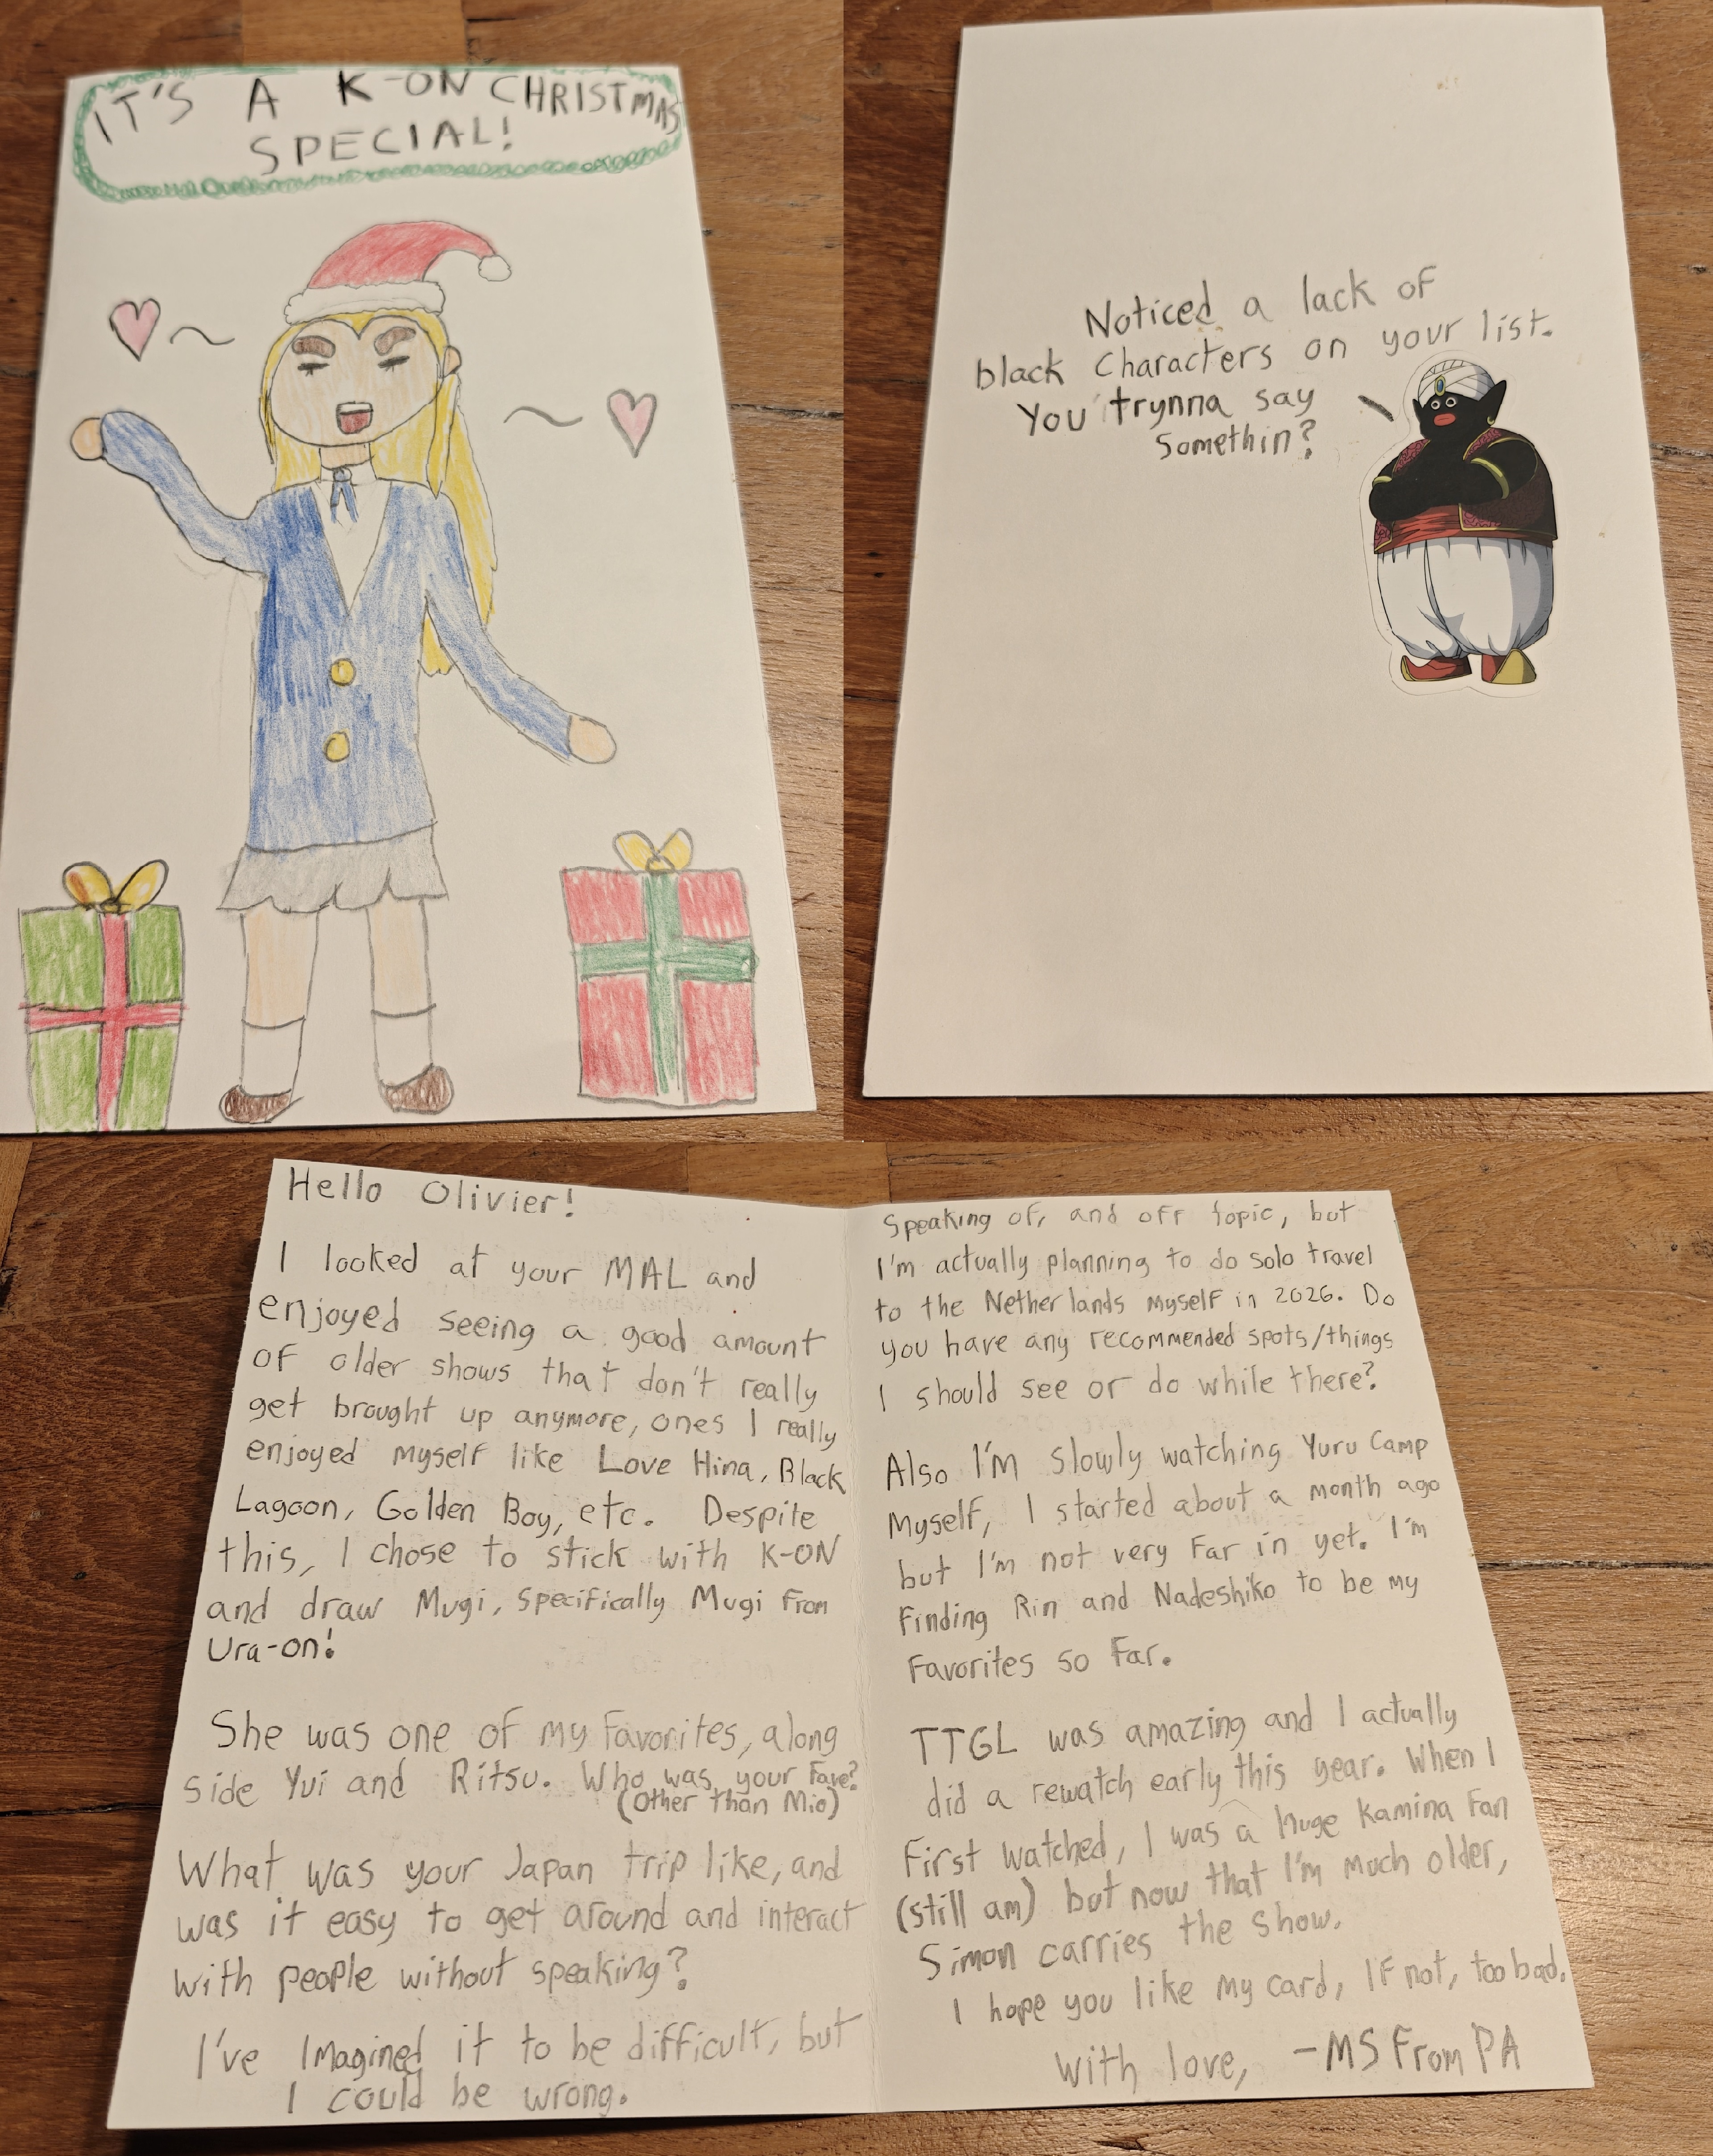 IT'S A K-ON CHRISTMAS
SPECIAL!
Noticed a lack of
black characters on your list.
You trynna say
somethin?
Hello Olivier!
I looked at your MAL and
enjoyed seeing a good amount
of older shows that don't really
get brought up anymore, ones I really
enjoyed myself like Love Hina, Black
Lagoon, Golden Boy, etc. Despite
this, I chose to stick with K-ON
and draw Mugi, specifically Mugi from
Ura-on!
She was one of my favorites, along
side Yui and Ritsu. Who was your fave?
(other than Mio)
What was your Japan trip like, and
was it easy to get around and interact
with people without speaking?
I've imagined it to be difficult, but
I could be wrong.
Speaking of, and off topic, but
I'm actually planning to do solo travel
to the Netherlands myself in 2026. Do
you have any recommended spots/things
I should see or do while there?
Also I'm slowly watching Yuru Camp
myself, I started about a month ago
but I'm not very far in yet. I'm
finding Rin and Nadeshiko to be my
favorites so far.
TTGL was amazing and I actually
did a rewatch early this year. When I
first watched, I was a huge Kamina fan
(still am) but now that I'm much older,
Simon carries the show.
I hope you like my card, If not, too bad.
With love, -MS From PA